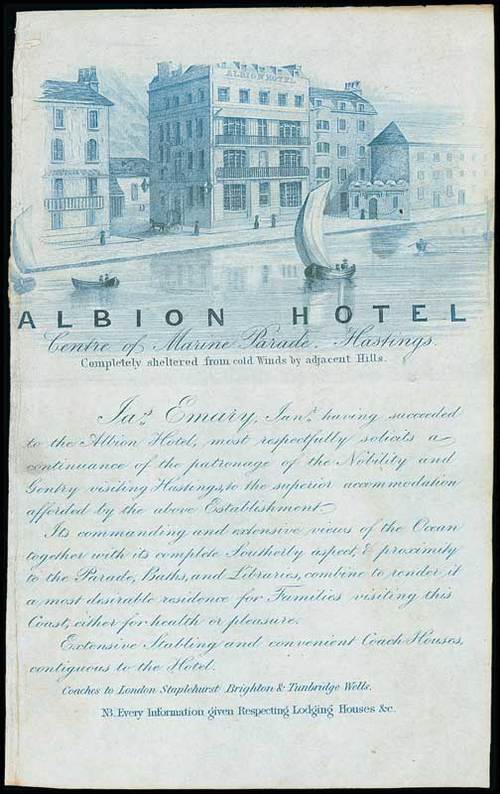 ALBION HOTEL
ALBION HOTEL
Centre of Marine Parade. Hastings.
Completely sheltered from cold Winds by adjacent Hills.
Jas. Emary, Junr. having succeeded
to the Albion Hotel, most respectfully solicits a
continuance of the patronage of the Nobility and
Gentry visiting Hastings, to the superior accommodation
afforded by the above Establishment.
Its commanding and extensive views of the Ocean
together with its complete Southerly aspect, & proximity
to the Parade, Baths, and Libraries, combine to render it
a most desirable residence for Families visiting this
Coast, either for health or pleasure.
Extensive Stabling and convenient Coach Houses,
contiguous to the Hotel.
Coaches to London Staplehurst Brighton & Tunbridge Wells.
NB. Every Information given Respecting Lodging Houses &c.